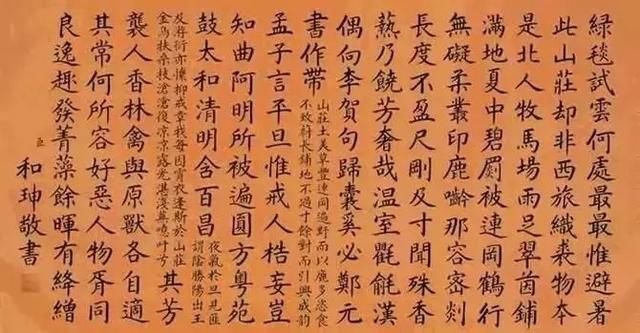 綠毯試雲何處最最惟避暑
此山莊却非西旅織裘物本
是北人牧馬場雨足翠茵鋪
滿地夏中碧罽被連岡鶴行
無礙柔叢印鹿那容密剡
長度不盈尺剛及寸聞殊香
爇乃饒芳奢哉溫室氍毹漢
偶向李賀句歸囊奚必鄭元
書作帶
山莊土美草豐連岡遍野而以鹿多恣食
不致蔚長鋪地不過寸餘對而引興成韵
孟子言平旦惟戒人梏妄豈
知曲阿明所被遍圓方粵苑
鼓太和清明含百昌
夜氣於旦見匪
謂陰勝陽出王
及衍亦懷抑戒章我每因賞衣逢斯於山莊
金烏扶桑枝滄滄復涼涼露光湛淺草噫叶兮
其芳
襲人香林禽與原獸各自適
其常何所容好惡人物胥同
良逸趣發菁藻餘暉有絳繒
臣和珅敬書